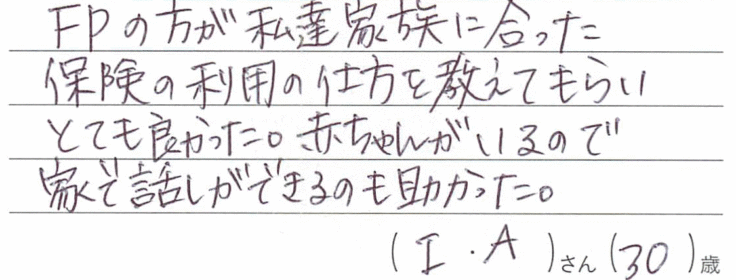 FPの方が私達家族に合った
保険の利用の仕方を教えてもらい
とても良かった。赤ちゃんがいるので
家で話しができるのも助かった。
(I・A)さん(30)歳